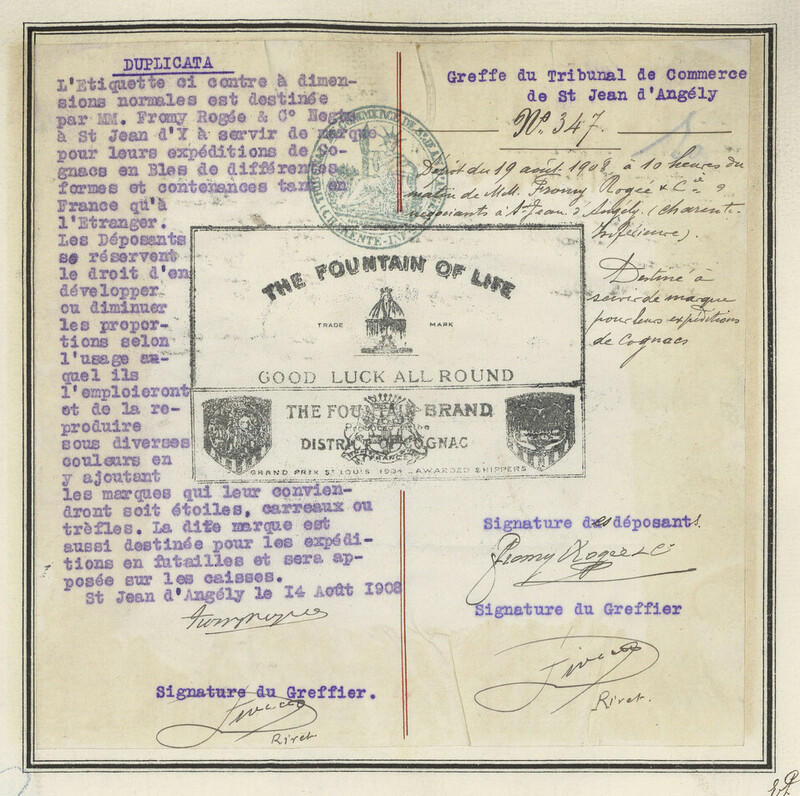 DUPLICATA
L'Etiquette ci contre à dimen-
sions normales est destinée
par MM. Fromy Rogée & C° Negts
à St Jean d'Y à servir de marque
pour leurs expéditions de Co-
gnacs en Bles de différentes
formes et contenances tant en
France qu'à
l'Etranger.
Les Déposants
se réservent
le droit d'en
développer
ou diminuer
les propor-
tions selon
l'usage au-
quel ils
l'emploieront
et de la re-
produire
sous diverses
couleurs en
y ajoutant
les marques qui leur convien-
dront soit étoiles, carreaux ou
trèfles. La dite marque est
aussi destinée pour les expédi-
tions en futailles et sera ap-
posée sur les caisses.
St Jean d'Angély le 14 Août 1908
Fromy Rogée
Signature du Greffier.
Riret
THE FOUNTAIN OF LIFE
TRADE MARK
GOOD LUCK ALL ROUND
THE FOUNTAIN BRAND
DISTRICT OF COGNAC
GRAND PRIX ST LOUIS 1904 - AWARDED SHIPPERS
Greffe du Tribunal de Commerce
de St Jean d'Angély
N° 347.
Dépôt du 19 août 1908 à 10 heures du
matin de MM. Fromy Rogée & Cie
négociants à St Jean d'Angély (Charente-
Inférieure).
Destiné à
servir de marque
pour leurs expéditions
de Cognacs
Signature des déposants.
Fromy Rogée & Co
Signature du Greffier
Riret.